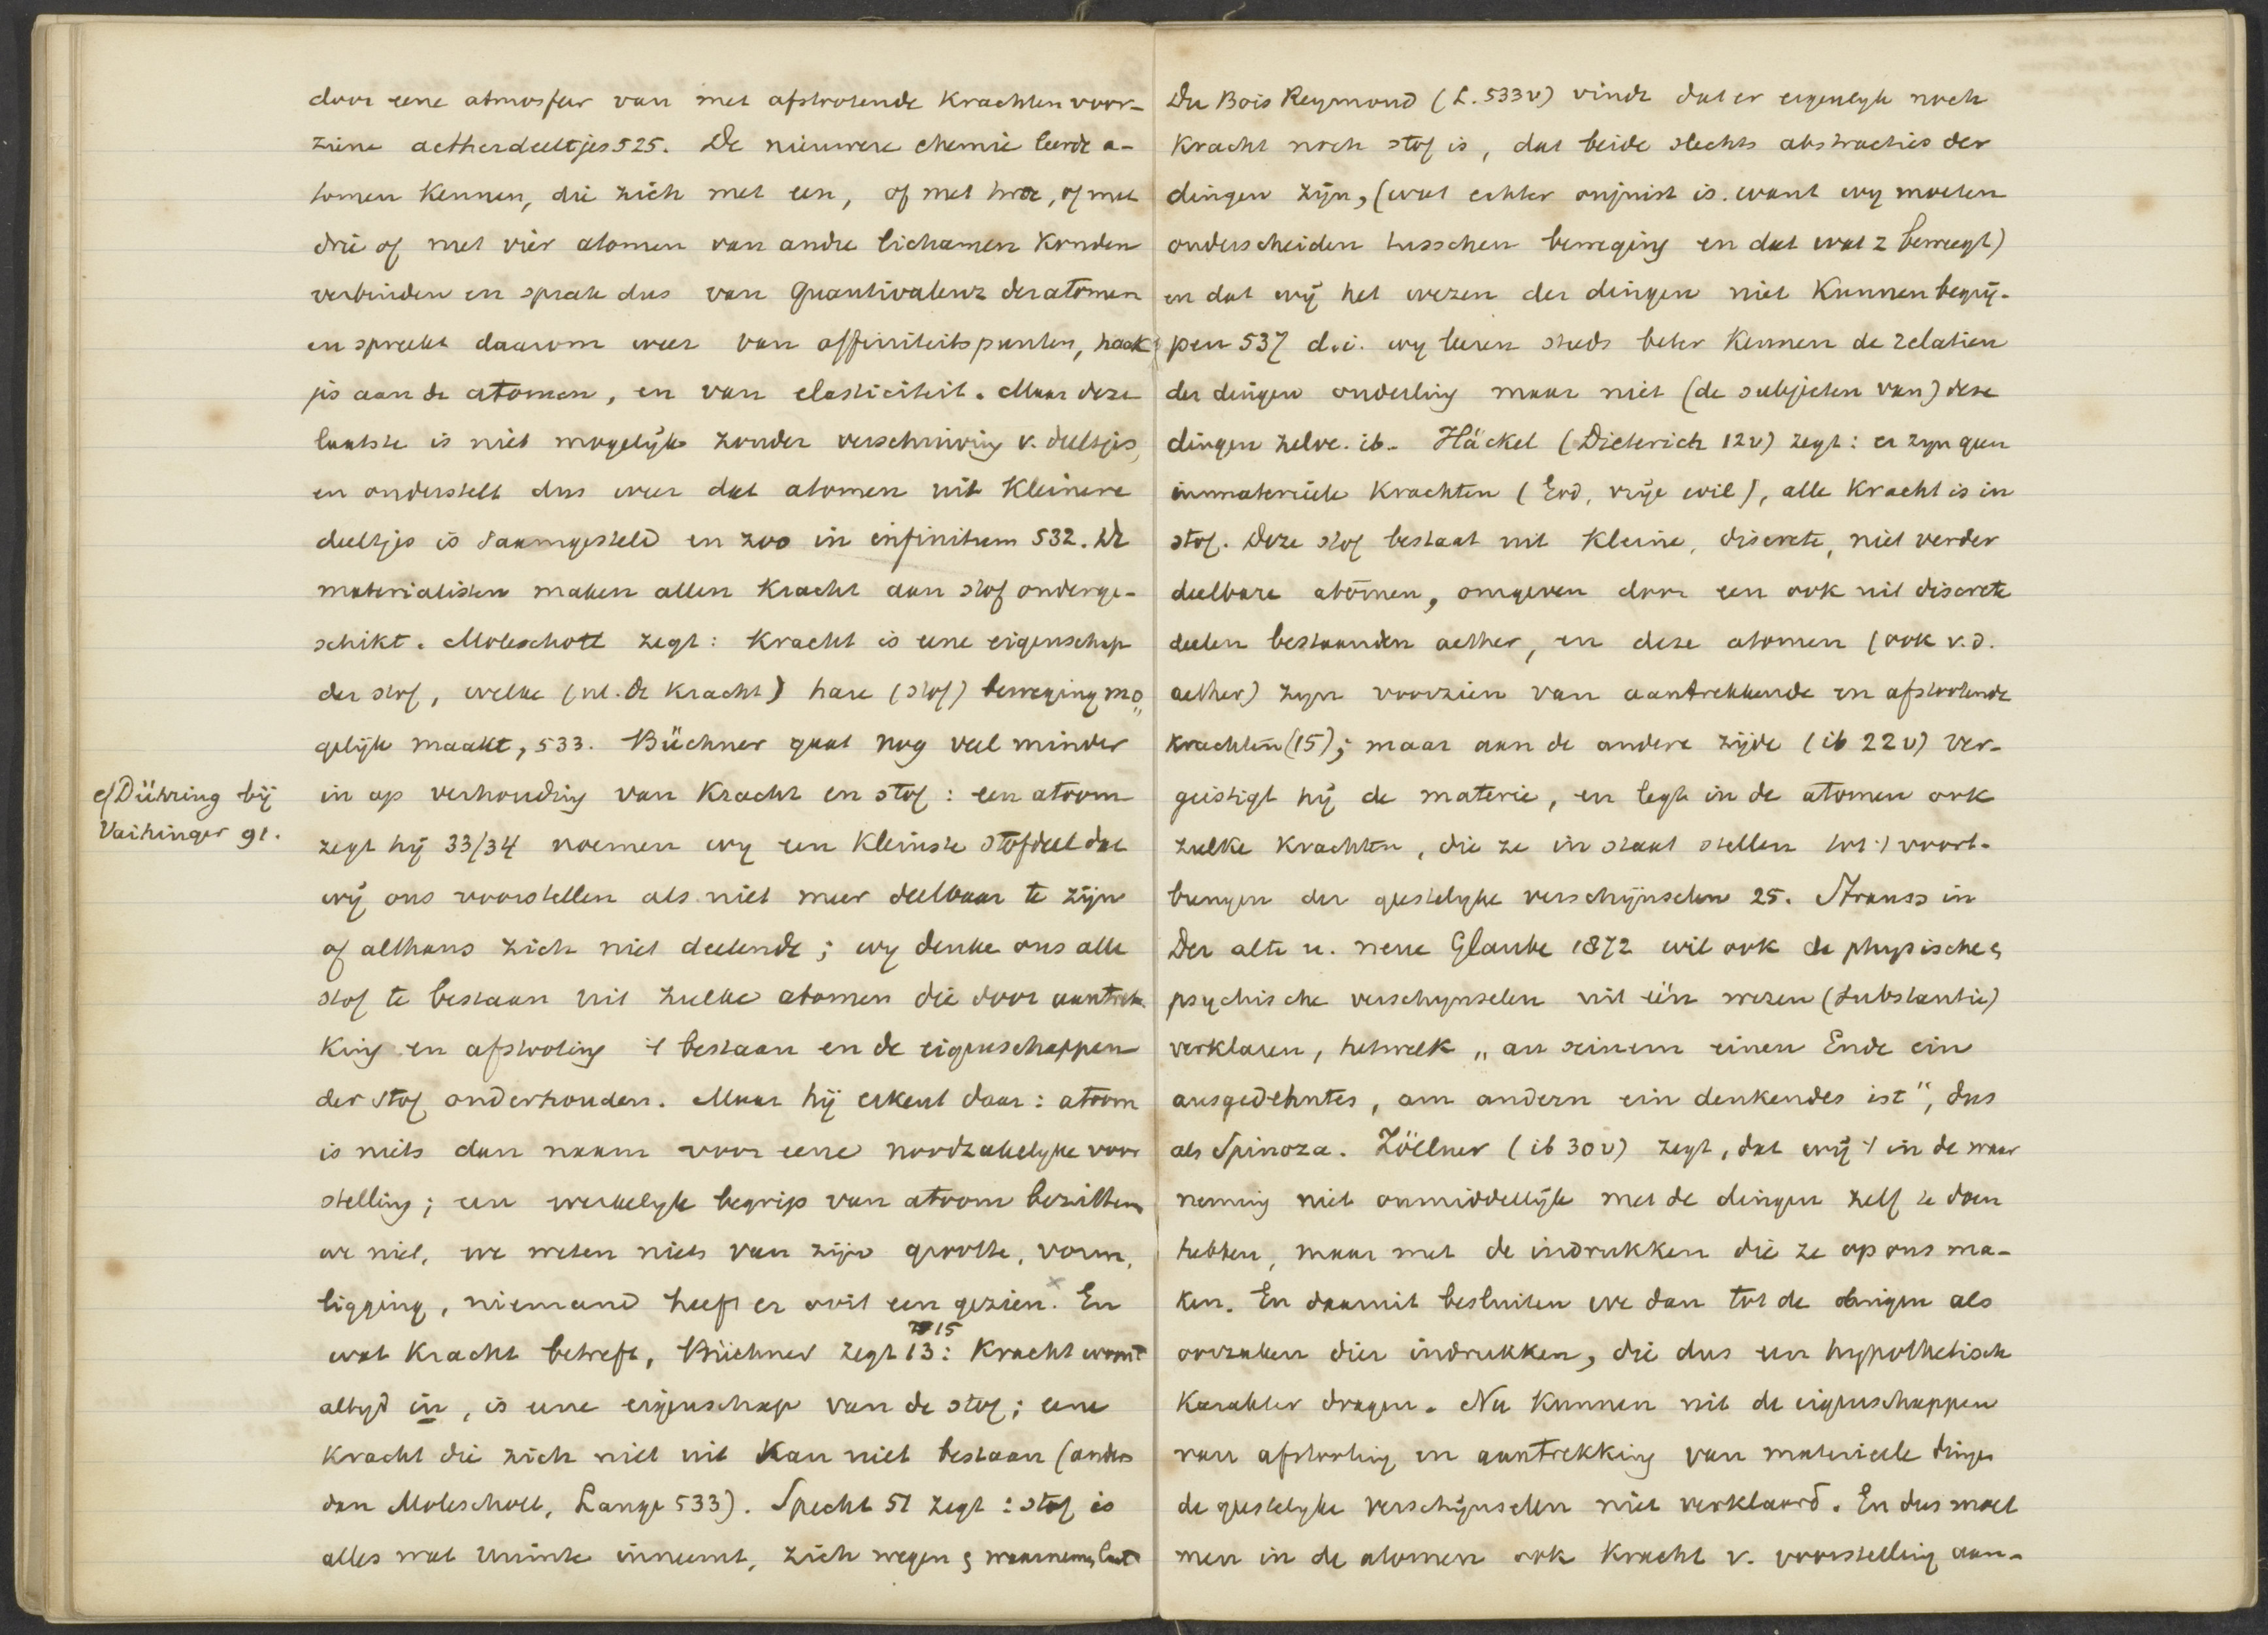 door eene atmosfeer van met afstootende krachten voor-
ziene aetherdeeltjes 525. De nieuwere chemie leerde a-
tomen kennen, die zich met een, of met twee, of met
drie of met vier atomen van andre lichamen konden
verbinden en sprak dus van Quantivalenz der atomen
en spreekt daarom weer van affiniteitspunten, haak
jes aan de atomen, en van elasticiteit. Maar deze
laatste is niet mogelijk zonder verschuiving v. deeltjes,
en onderstelt dus weer dat atomen uit kleinere
deeltjes is saamgesteld en zoo in infinitum 532. De
materialisten maken allen kracht aan stof onderge-
schikt. Moleschott zegt: kracht is eene eigenschap
der stof, welke (nl. de kracht) hare (stof) beweging mo„
gelijk maakt, 533. Büchner gaat nog veel minder
in op verhouding van kracht en stof: een atoom
zegt hij 33/34 noemen wy een kleinste stofdeel dat
wij ons voorstellen als niet meer deelbaar te zijn
of althans zich niet deelende; wy denke ons alle
stof te bestaan uit zulke atomen die door aantrek
king en afstooting 't bestaan en de eigenschappen
der stof onderhouden. Maar hij erkent daar: atoom
is niets dan naam voor eene noodzakelyke voor
stelling; een werkelyk begrip van atoom bezitten
we niet, we weten niets van zijn grootte, vorm,
ligging, niemand heeft er ooit een gezien. En
wat kracht betreft, Büchner zegt 13: Kracht woont
15
altyd in, is eene eigenschap van de stof; eene
kracht die zich niet uit kan niet bestaan (anders
dan Moleschott, Lange 533). Specht 51 zegt: stof is
alles wat ruimte inneemt, zich wegen & waarnemen laat
cf Dühring bij
Vaihinger 91.
Du Bois Reymond (L. 533v) vindt dat er eigenlyk noch
kracht noch stof is, dat beide slechts abstracties der
dingen zijn, (wat echter onjuist is. want wy moeten
onderscheiden tusschen beweging en dat wat z beweegt)
en dat wij het wezen der dingen niet kunnen begrij-
pen 537 d.i. wy leeren steeds beter kennen de relatien
der dingen onderling maar niet (de subjecten van) deze
dingen zelve. ib. Häckel (Dieterich 12v) zegt: er zyn geen
immaterieele krachten (God, vrije wil), alle kracht is in
stof. Deze stof bestaat uit kleine, discrete, niet verder
deelbare atomen, omgeven door een ook uit discrete
deelen bestaanden aether, en deze atomen (ook v.d.
aether) zyn voorzien van aantrekkende en afstootende
krachten (15); maar aan de andere zijde (ib 22v) ver-
geestigt hij de materie, en legt in de atomen ook
zulke krachten, die ze in staat stellen tot 't voort-
brengen der geestelyke verschijnselen 25. Strauss in
Der alte u. neue Glaube 1872 wil ook de physische &
psychische verschynselen uit één wezen (substantie)
verklaren, hetwelk „an seinem einen Ende ein
ausgedehntes, am andern ein denkendes ist", dus
als Spinoza. Zöllner (ib 30v) zegt, dat wij 't in de waar
neming niet onmiddellijk met de dingen zelf te doen
hebben, maar met de indrukken die ze op ons ma-
ken. En daaruit besluiten we dan tot de dingen als
oorzaken dier indrukken, die dus een hypothetisch
karakter dragen. Nu kunnen uit de eigenschappen
van afstooting en aantrekking van materieele dingen
de geestelyke verschijnselen niet verklaard. En dus moet
men in de atomen ook kracht v. voorstelling aan-